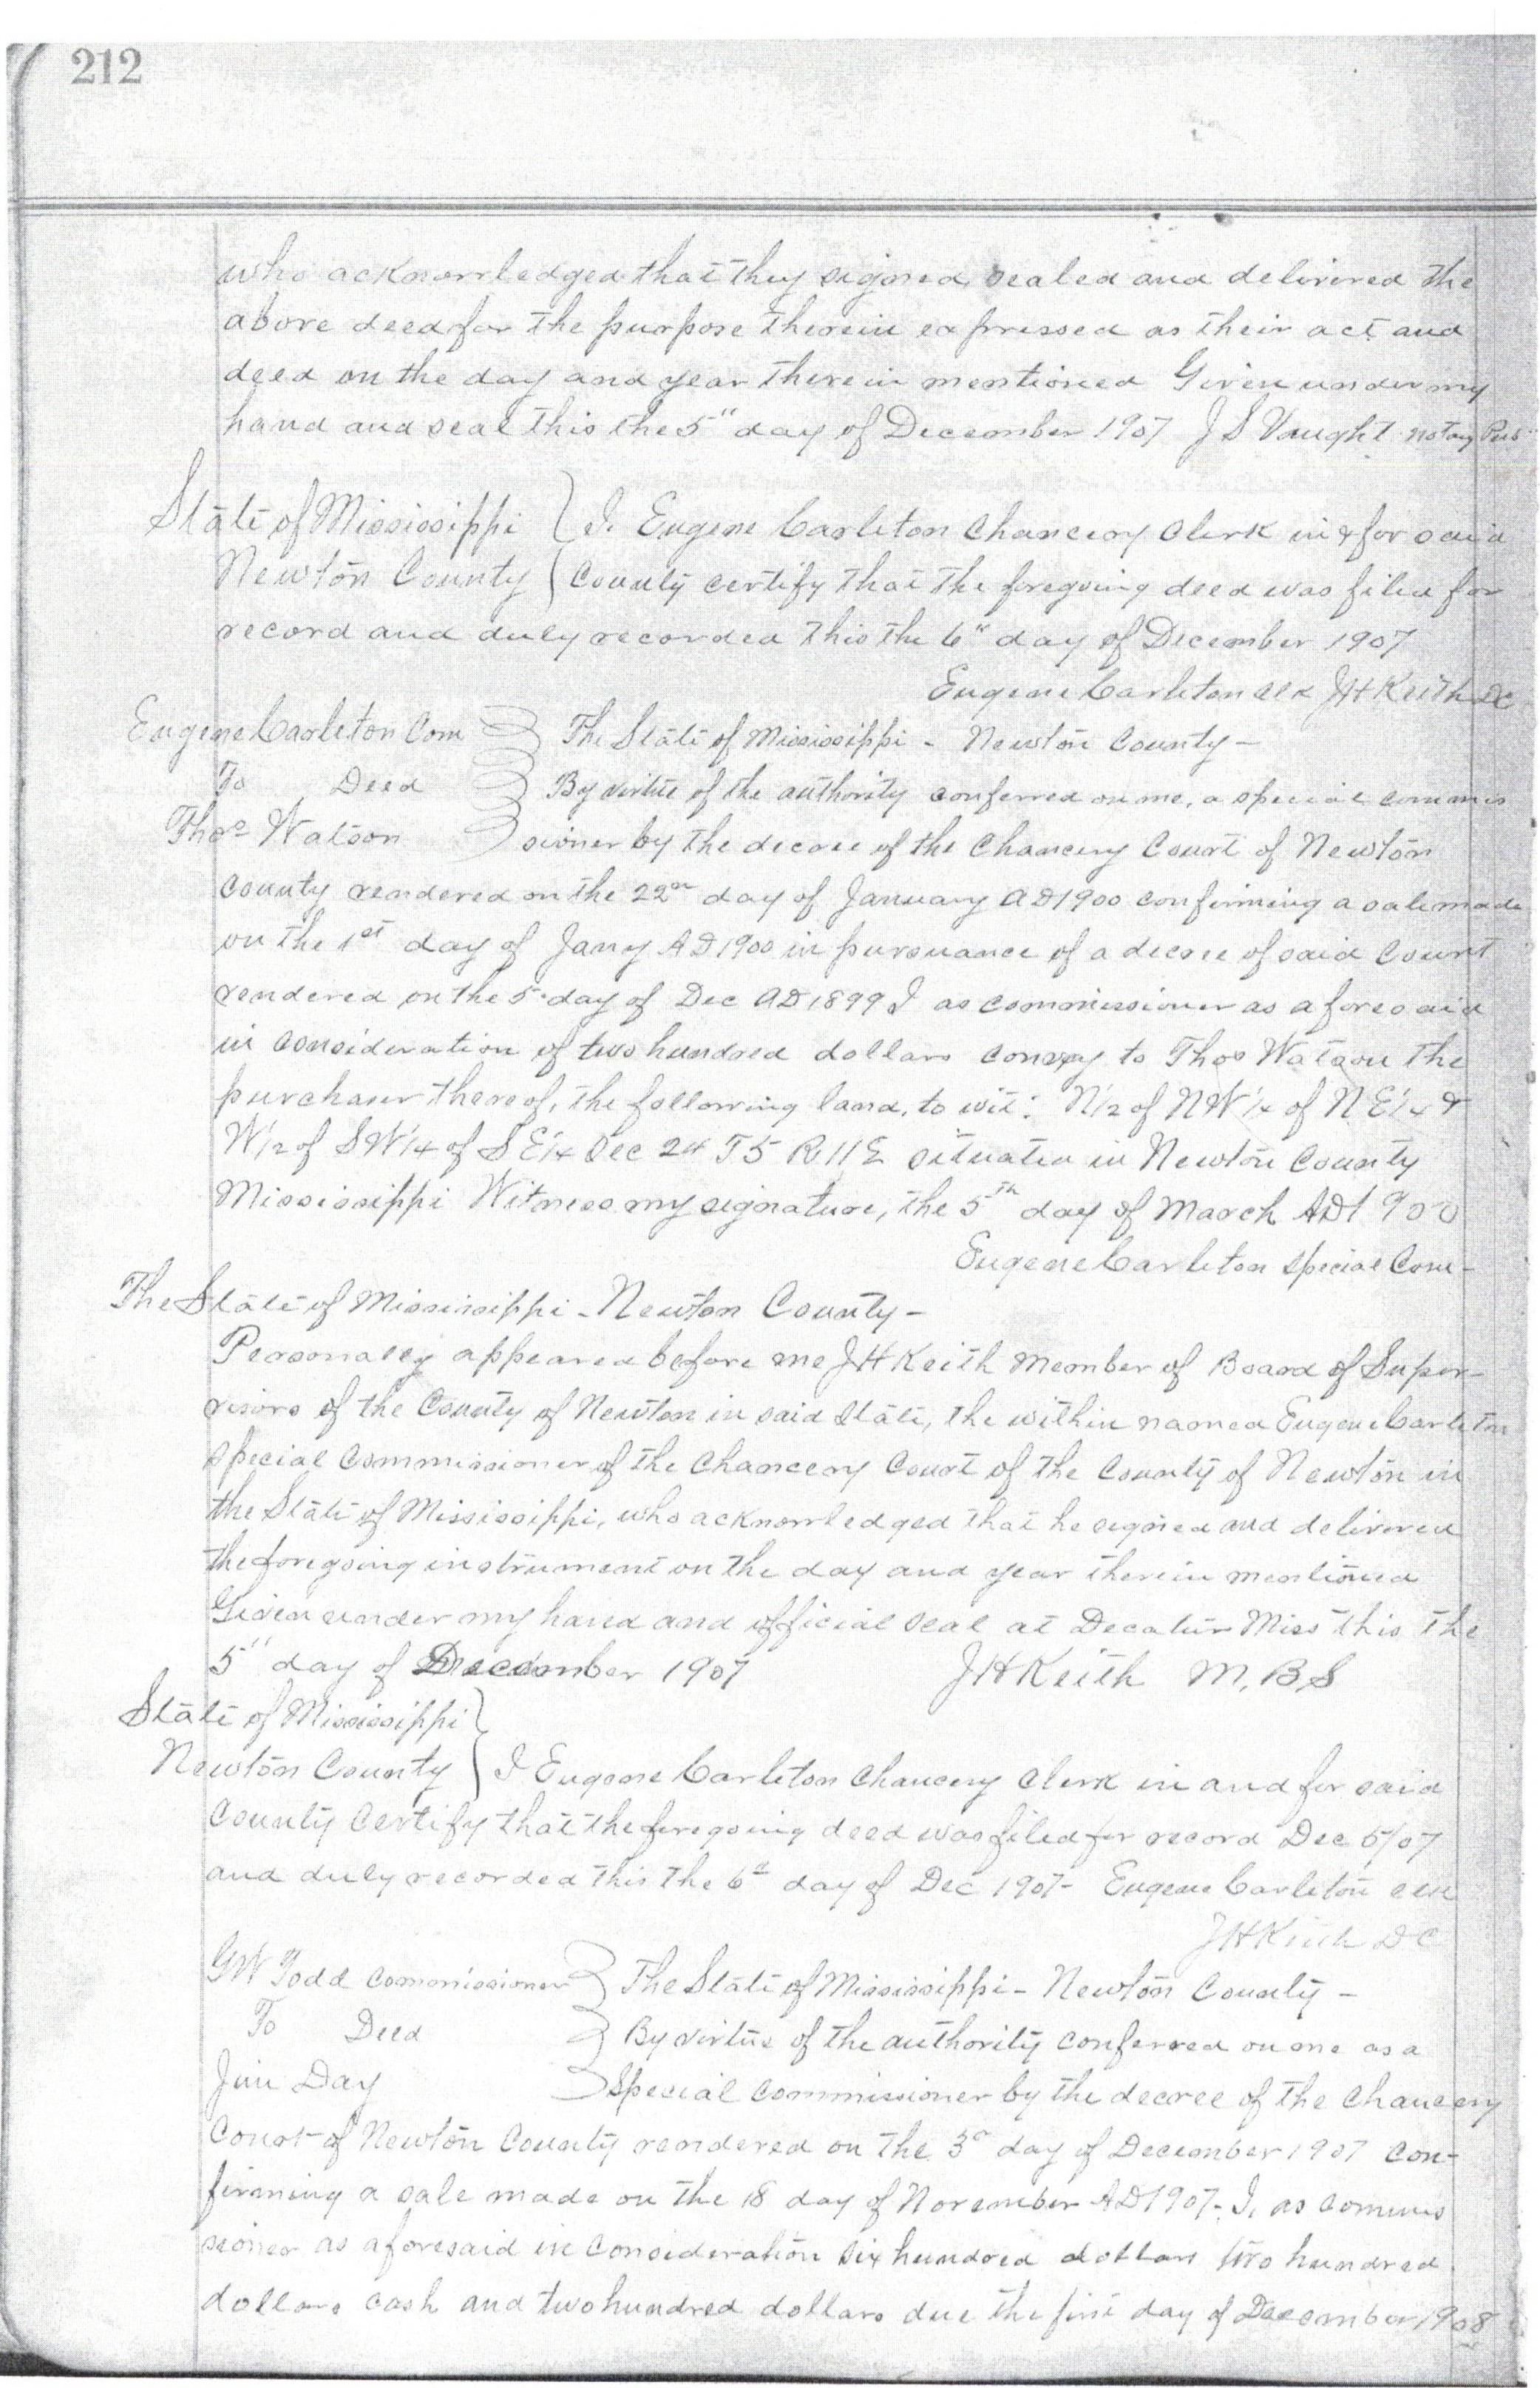 212
who acknowledged that they signed, sealed and delivered the
above deed for the purpose therein expressed as their act and
deed on the day and year therein mentioned Given under my
hand and seal this the 5" day of December 1907 J S Vaught notary Pub
State of Mississippi } I. Eugene Carleton Chancery Clerk in & for said
Newton County } County certify that the foregoing deed was filed for
record and duly recorded this the 6" day of December 1907
Eugene Carleton Clk J H Keith DC
Eugene Carleton Com } The State of Mississippi - Newton County -
To Deed } By virtue of the authority conferred on me, a special commis
Thos Watson } sioner by the decree of the Chancery Court of Newton
County rendered on the 22nd day of January AD 1900 confirming a sale made
on the 1st day of Jany AD 1900 in pursuance of a decree of said Court
rendered on the 5 day of Dec AD 1899 I as commissioner as aforesaid
in consideration of two hundred dollars convey to Thos Watson the
purchaser thereof, the following land, to wit: N 1/2 of NW 1/4 of N E 1/4 &
W 1/2 of SW 1/4 of S E 1/4 Sec 24 T5 R 11 E situated in Newton County
Mississippi Witness my signature, the 5th day of March AD 1900
Eugene Carleton Special Com -
The State of Mississippi - Newton County -
Personally appeared before me J H Keith Member of Board of Super-
visors of the County of Newton in said State, the within named Eugene Carleton
Special Commissioner of the Chancery Court of the County of Newton in
the State of Mississippi, who acknowledged that he signed and delivered
the foregoing instrument on the day and year therein mentioned
Given under my hand and official seal at Decatur Miss this the
5" day of December 1907 J H Keith M, B, S
State of Mississippi }
Newton County } I Eugene Carleton Chancery Clerk in and for said
County Certify that the foregoing deed was filed for record Dec 5/07
and duly recorded this the 6th day of Dec 1907 - Eugene Carleton Clk
J H Keith D C
G W Todd Commissioner } The State of Mississippi - Newton County -
To Deed } By virtue of the authority conferred on me as a
Jim Day } Special Commissioner by the decree of the Chancery
Court of Newton County rendered on the 3d day of December 1907 Con-
firming a sale made on the 18 day of November AD 1907 - I, as Commis
sioner as aforesaid in consideration six hundred dollars two hundred
dollars cash and two hundred dollars due the first day of December 1908